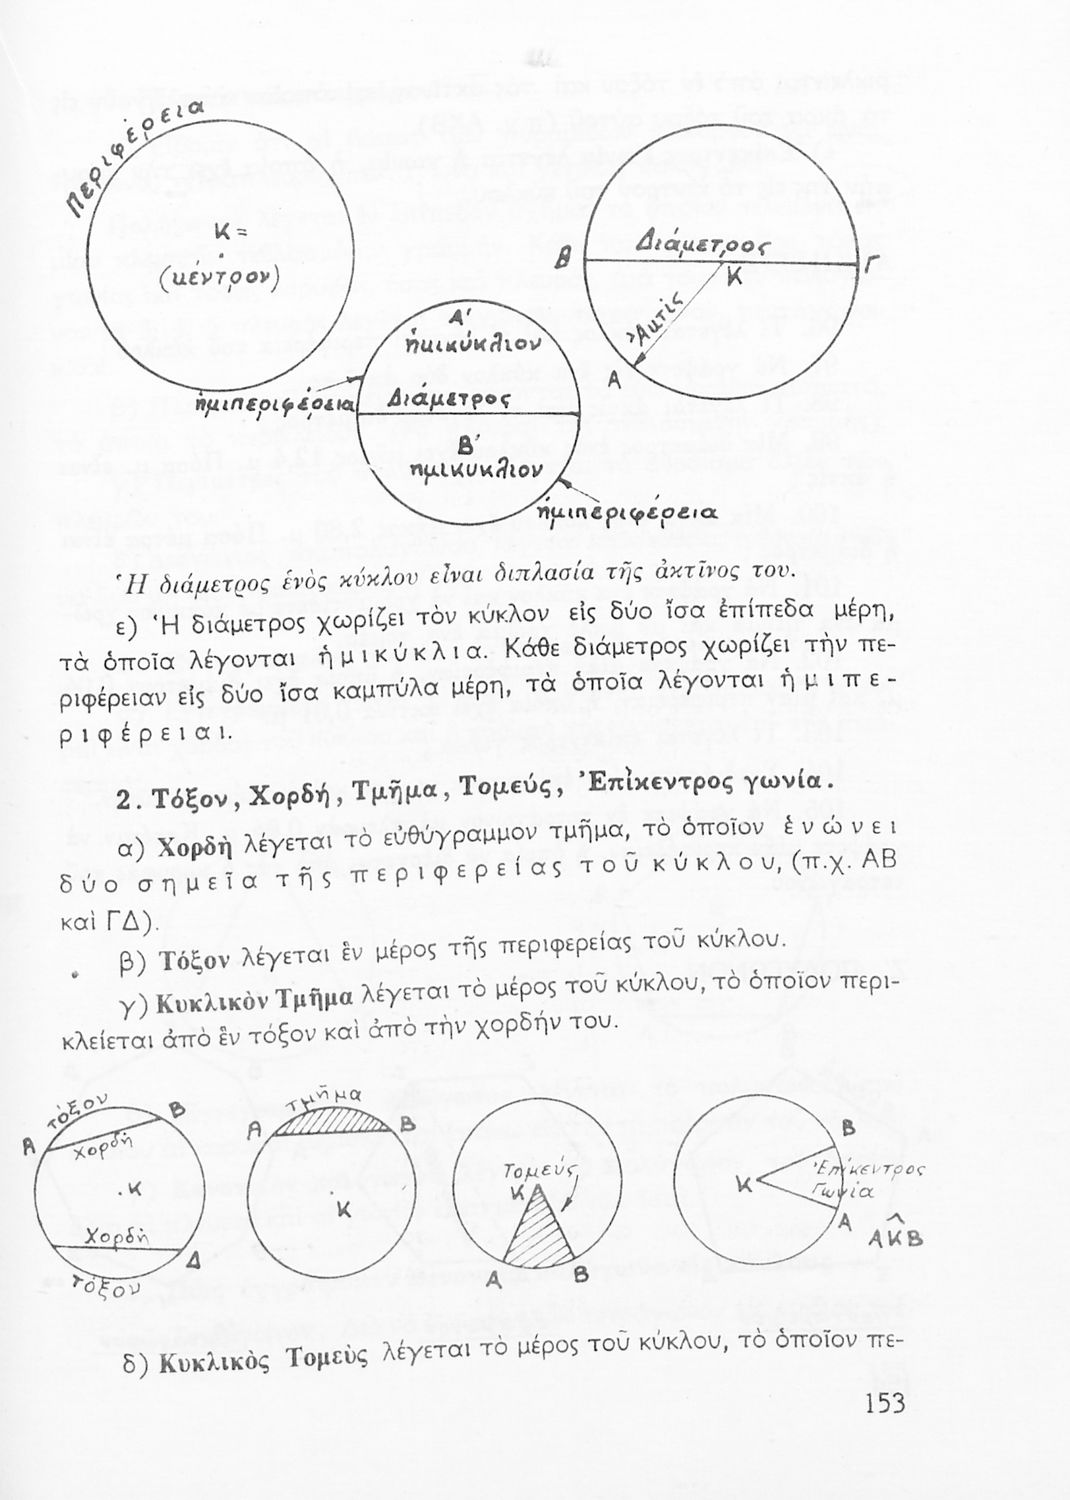 Περιφέρεια
Κ =
(κέντρον)
Διάμετρος
Β
Γ
Κ
Ἀκτίς
Α
Α'
ἡμικύκλιον
ἡμιπεριφέρεια
Διάμετρος
Β'
ημικυκλιον
ἡμιπεριφέρεια
Ἡ διάμετρος ἑνὸς κύκλου εἶναι διπλασία τῆς ἀκτῖνος του.
ε) Ἡ διάμετρος χωρίζει τὸν κύκλον εἰς δύο ἴσα ἐπίπεδα μέρη,
τὰ ὁποῖα λέγονται ἡμικύκλια. Κάθε διάμετρος χωρίζει τὴν πε-
ριφέρειαν εἰς δύο ἴσα καμπύλα μέρη, τὰ ὁποῖα λέγονται ἡμιπε-
ριφέρειαι.
2. Τόξον, Χορδή, Τμῆμα, Τομεύς, Ἐπίκεντρος γωνία.
α) Χορδὴ λέγεται τὸ εὐθύγραμμον τμῆμα, τὸ ὁποῖον ἑνώνει
δύο σημεῖα τῆς περιφερείας τοῦ κύκλου, (π.χ. ΑΒ
καὶ ΓΔ).
β) Τόξον λέγεται ἓν μέρος τῆς περιφερείας τοῦ κύκλου.
γ) Κυκλικὸν Τμῆμα λέγεται τὸ μέρος τοῦ κύκλου, τὸ ὁποῖον περι-
κλείεται ἀπὸ ἓν τόξον καὶ ἀπὸ τὴν χορδήν του.
τόξον
Α
Β
Χορδὴ
Κ
Χορδὴ
Δ
τόξον
τμῆμα
Α
Β
Κ
Τομεύς
Κ
Α
Β
Β
Ἐπίκεντρος
Κ
Γωνία
Α
ΑΚ̂Β
δ) Κυκλικὸς Τομεὺς λέγεται τὸ μέρος τοῦ κύκλου, τὸ ὁποῖον πε-
153